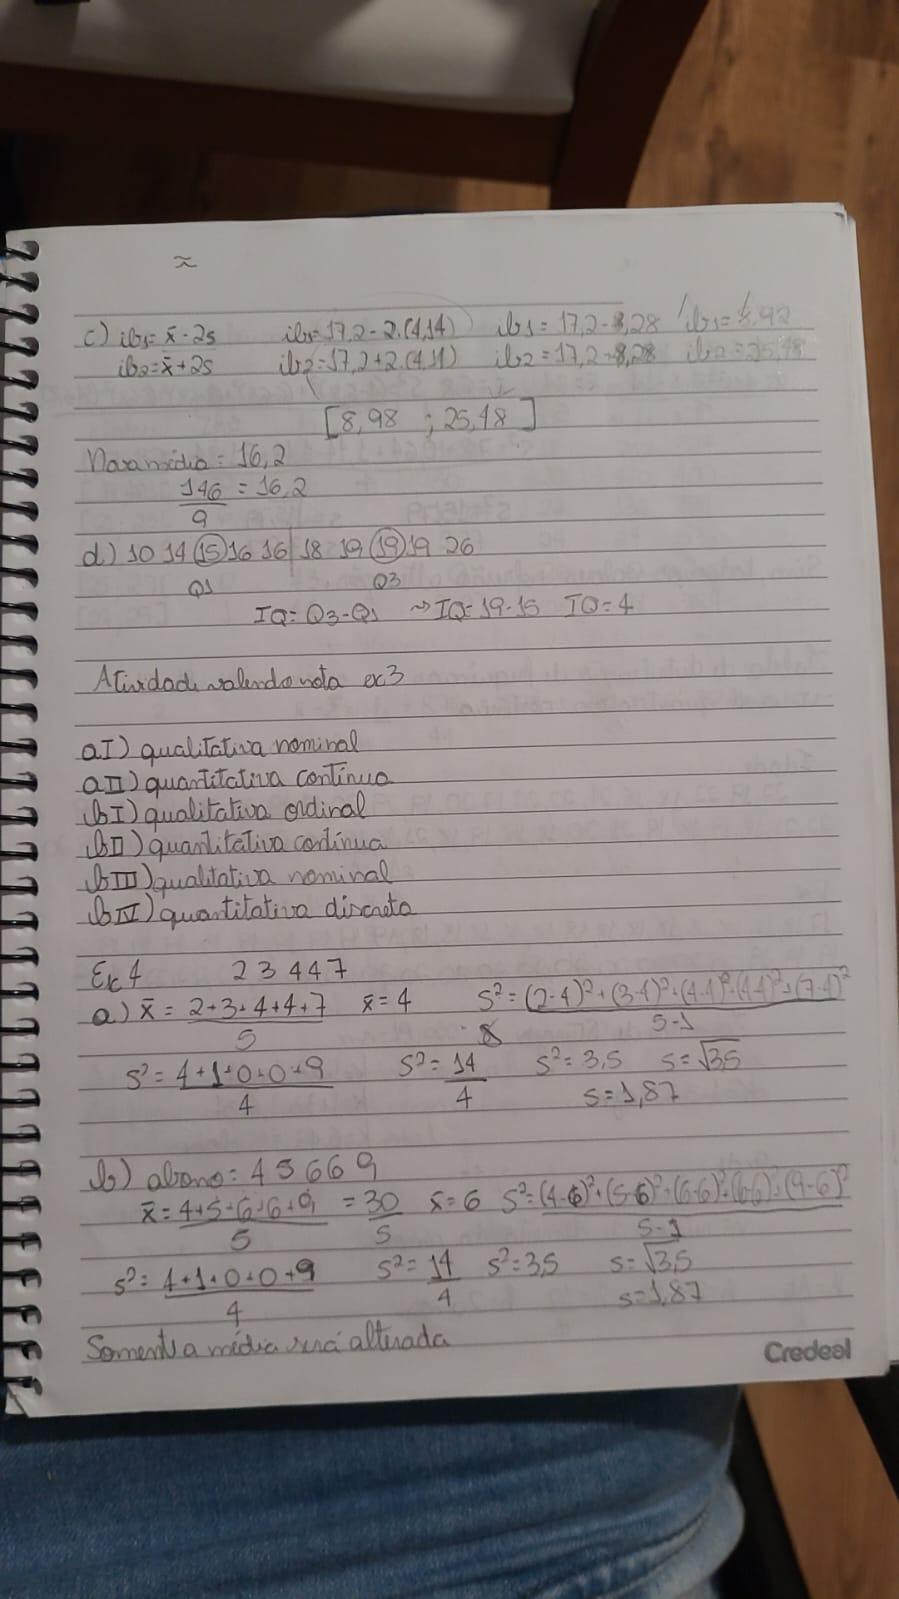 ≈
c) ib1= x̄ - 2s   ib1= 17,2 - 2.(4,14)   ib1 = 17,2 - 8,28   ib1= 8,92
ib2= x̄ + 2s   ib2= 17,2 + 2.(4,14)   ib2 = 17,2 - 8,28   ib2 = 25,48
[8,98 ; 25,48]
Nova média = 16,2
146/9 = 16,2
d) 10 14 15 16 16 | 18 19 19 19 26
Q1   Q3
IQ= Q3-Q1 → IQ= 19-15   IQ= 4
Atividade valendo nota ex3
a.I) qualitativa nominal
a.II) quantitativa contínua
b.I) qualitativa ordinal
b.II) quantitativa contínua
b.III) qualitativa nominal
b.IV) quantitativa discreta
Ex 4   2 3 4 4 7
a) x̄ = 2+3+4+4+7/5   x̄ = 4   S² = (2-4)²+(3-4)²+(4-4)²+(4-4)²+(7-4)²/5-1
s² = 4+1+0+0+9/4   s² = 14/4   s² = 3,5   s = √3,5
s = 1,87
b) abono: 4 5 6 6 9
x̄ = 4+5+6+6+9/5 = 30/5   x̄ = 6   s² = (4-6)²+(5-6)²+(6-6)²+(6-6)²+(9-6)²/5-1
s² = 4+1+0+0+9/4   s² = 14/4   s² = 3,5   s = √3,5
s = 1,87
Somente a média será alterada
Credeal